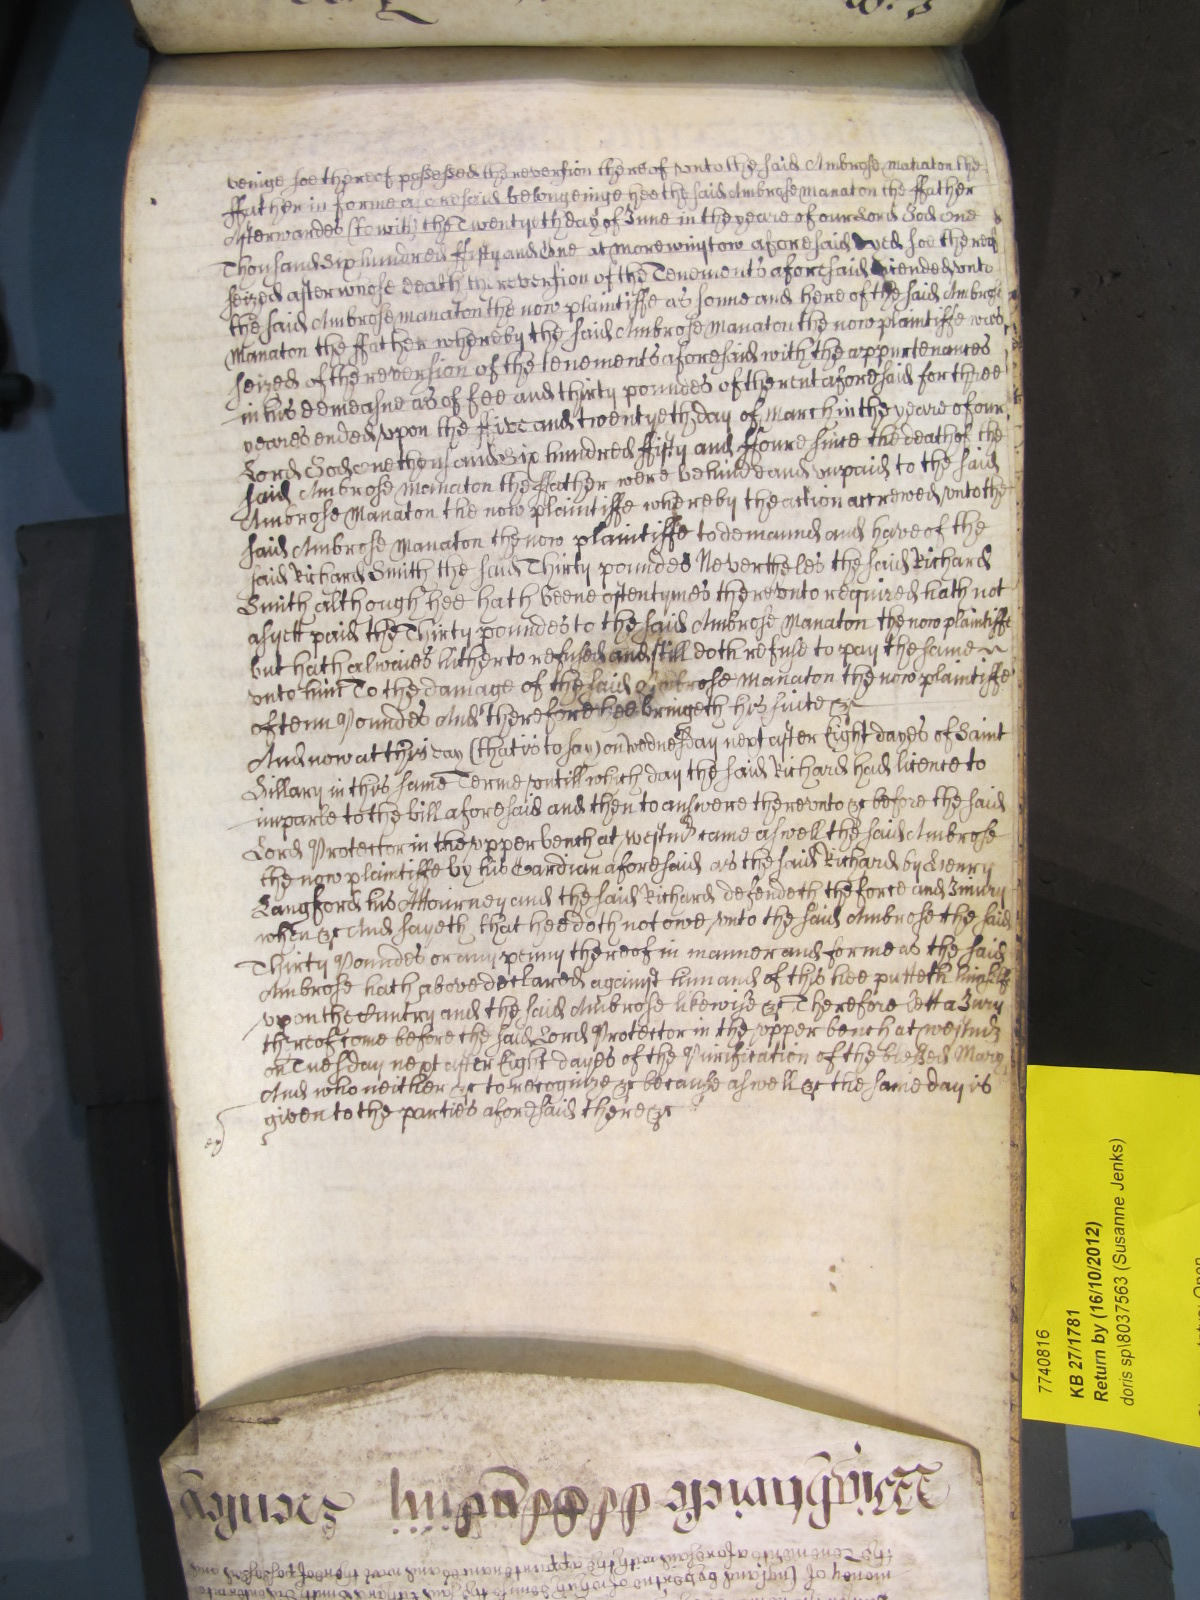 beinge soe thereof possessed the reversion thereof unto the said Ambrose Manaton the
ffather in forme aforesaid belongeinge hee the said Ambrose Manaton the ffather
Afterwardes (to witt) the Twentyeth day of June in the yeare of our Lord God One
Thousand Six hundred ffifty and One at Morewinstow aforesaid dyed soe thereof
seized after whose death the reversion of the Tenements aforesaid descended unto
the said Ambrose Manaton the now plaintiffe as sonne and here of the said Ambrose
Manaton the ffather whereby the said Ambrose Manaton the now plaintiffe was
seized of the reversion of the tenements aforesaid with the appurtenances
in his demeasne as of fee and thirty poundes of the rent aforesaid for three
yeares ended upon the ffive and twentyeth day of March in the yeare of our
Lord God one thousand Six hundred ffifty and ffoure since the death of the
said Ambrose Manaton the ffather were behinde and unpaid to the said
Ambrose Manaton the now plaintiffe whereby the action accrewed unto the
said Ambrose Manaton the now plaintiffe to demaund and have of the
said Richard Smith the said Thirty poundes Nevertheles the said Richard
Smith although hee hath beene oftentymes thereunto required hath not
as yett paid the Thirty poundes to the said Ambrose Manaton the now plaintiffe
but hath alwaies hitherto refused and still doth refuse to pay the same
unto him To the damage of the said Ambrose Manaton the now plaintiffe
of tenn Poundes And therefore hee bringeth his suite &c
And now at this day (that is to say) on wednesday next after Eight dayes of Saint
Hillary in this same Terme untill which day the said Richard had licence to
imparle to the bill aforesaid and then to answere thereunto &c before the said
Lord Protector in the upper bench at westmr came aswell the said Ambrose
the now plaintiffe by his Gardian aforesaid as the said Richard by Henry
Langford his Attourney and the said Richard defendeth the force and Iniury
when &c And sayeth that hee doth not owe unto the said Ambrose the said
Thirty Poundes or any penny thereof in manner and forme as the said
Ambrose hath above declared against him and of this hee putteth himselfe
upon the Cuntry and the said Ambrose likewise &c Therefore lett a Jury
thereof come before the said Lord Protector in the upper bench at westmr
on Tuesday next after Eight dayes of the Purification of the blessed Mary
And who neither &c to recognize &c because aswell &c the same day is
given to the parties aforesaid there &c
7740816
KB 27/1781
Return by (16/10/2012)
doris sp\8037563 (Susanne Jenks)
Wightwicke
Henley
the Tenements aforesaid with the appurtenances and was thereof possessed and